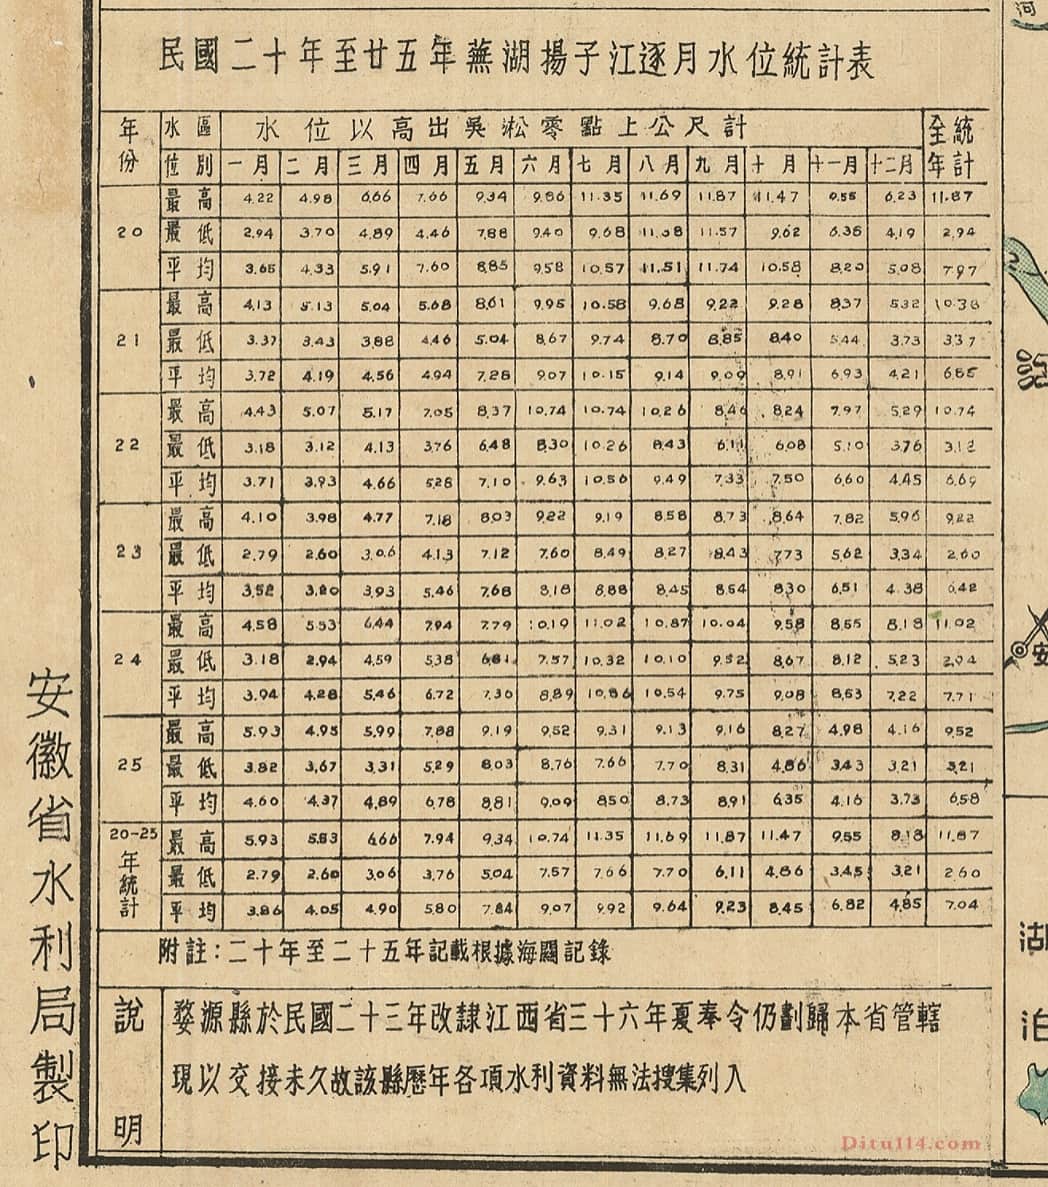 民國二十年至廿五年蕪湖揚子江逐月水位統計表
年份 水位 區別 水位以高出吳淞零點上公尺計 全年統計
一月 二月 三月 四月 五月 六月 七月 八月 九月 十月 十一月 十二月
20 最高 4.22 4.98 6.66 7.66 9.34 9.86 11.35 11.69 11.87 11.47 9.55 6.23 11.87
最低 2.94 3.70 4.89 4.46 7.88 9.40 9.68 11.38 11.57 9.62 6.35 4.19 2.94
平均 3.65 4.33 5.91 7.60 8.85 9.58 10.57 11.51 11.74 10.58 8.20 5.08 7.97
21 最高 4.13 5.13 5.04 5.68 8.61 9.95 10.58 9.68 9.22 9.28 8.37 5.32 10.38
最低 3.37 3.43 3.88 4.46 5.04 8.67 9.74 8.70 8.85 8.40 5.44 3.73 3.37
平均 3.72 4.19 4.56 4.94 7.28 9.07 10.15 9.14 9.09 8.91 6.93 4.21 6.85
22 最高 4.43 5.07 5.17 7.05 8.37 10.74 10.74 10.26 8.46 8.24 7.97 5.29 10.74
最低 3.18 3.12 4.13 3.76 6.48 8.30 10.26 8.43 6.11 6.08 5.10 3.76 3.12
平均 3.71 3.93 4.66 5.28 7.10 9.63 10.56 9.49 7.33 7.50 6.60 4.45 6.69
23 最高 4.10 3.98 4.77 7.18 8.03 9.22 9.19 8.58 8.73 8.64 7.82 5.96 9.22
最低 2.79 2.60 3.06 4.13 7.12 7.60 8.49 8.27 8.43 7.73 5.62 3.34 2.60
平均 3.52 3.20 3.93 5.46 7.68 8.18 8.88 8.45 8.54 8.30 6.51 4.38 6.42
24 最高 4.58 5.53 6.44 7.94 7.79 10.19 11.02 10.87 10.04 9.58 8.55 8.18 11.02
最低 3.18 2.94 4.59 5.38 6.81 7.57 10.32 10.10 9.52 8.67 8.12 5.23 2.94
平均 3.94 4.28 5.46 6.72 7.30 8.89 10.86 10.54 9.75 9.08 8.53 7.22 7.71
25 最高 5.93 4.95 5.99 7.88 9.19 9.52 9.31 9.13 9.16 8.27 4.98 4.16 9.52
最低 3.82 3.67 3.31 5.29 8.03 8.76 7.66 7.70 8.31 4.86 3.43 3.21 3.21
平均 4.60 4.37 4.89 6.78 8.81 9.09 8.50 8.73 8.91 6.35 4.16 3.73 6.58
20-25年統計 最高 5.93 5.53 6.66 7.94 9.34 10.74 11.35 11.69 11.87 11.47 9.55 8.18 11.87
最低 2.79 2.60 3.06 3.76 5.04 7.57 7.66 7.70 6.11 4.86 3.45 3.21 2.60
平均 3.86 4.05 4.90 5.80 7.84 9.07 9.92 9.64 9.23 8.45 6.82 4.85 7.04
附註：二十年至二十五年記載根據海關記錄
說明
婺源縣於民國二十三年改隸江西省三十六年夏奉令仍劃歸本省管轄
現以交接未久故該縣歷年各項水利資料無法搜集列入
安徽省水利局製印
河
安
湖
泊
Ditu114.com